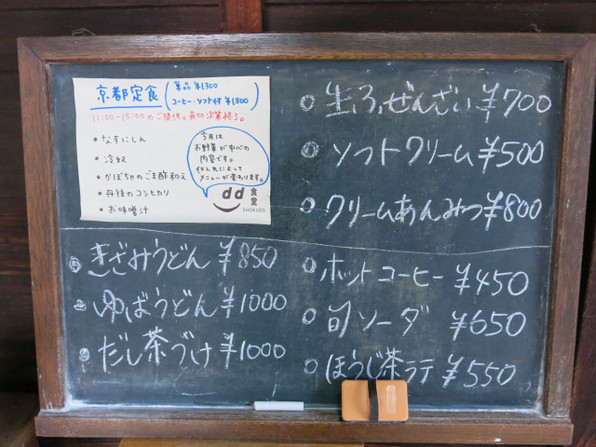 京都定食
単品 ¥1300
コーヒー・ソフト付 ¥1800
11:00-15:00のご提供。売切次第終了。
• なすにしん
• 冷奴
• かぼちゃのごま酢和え
• 丹後のコシヒカリ
• お味噌汁
今月は
お野菜が中心の
内容です。
仕入れによって
メニューが変わります。
dd食堂
SHOKUDO
きざみうどん ¥850
ゆばうどん ¥1000
だし茶づけ ¥1000
生ふぜんざい ¥700
ソフトクリーム ¥500
クリームあんみつ ¥800
ホットコーヒー ¥450
旬ソーダ ¥650
ほうじ茶ラテ ¥550